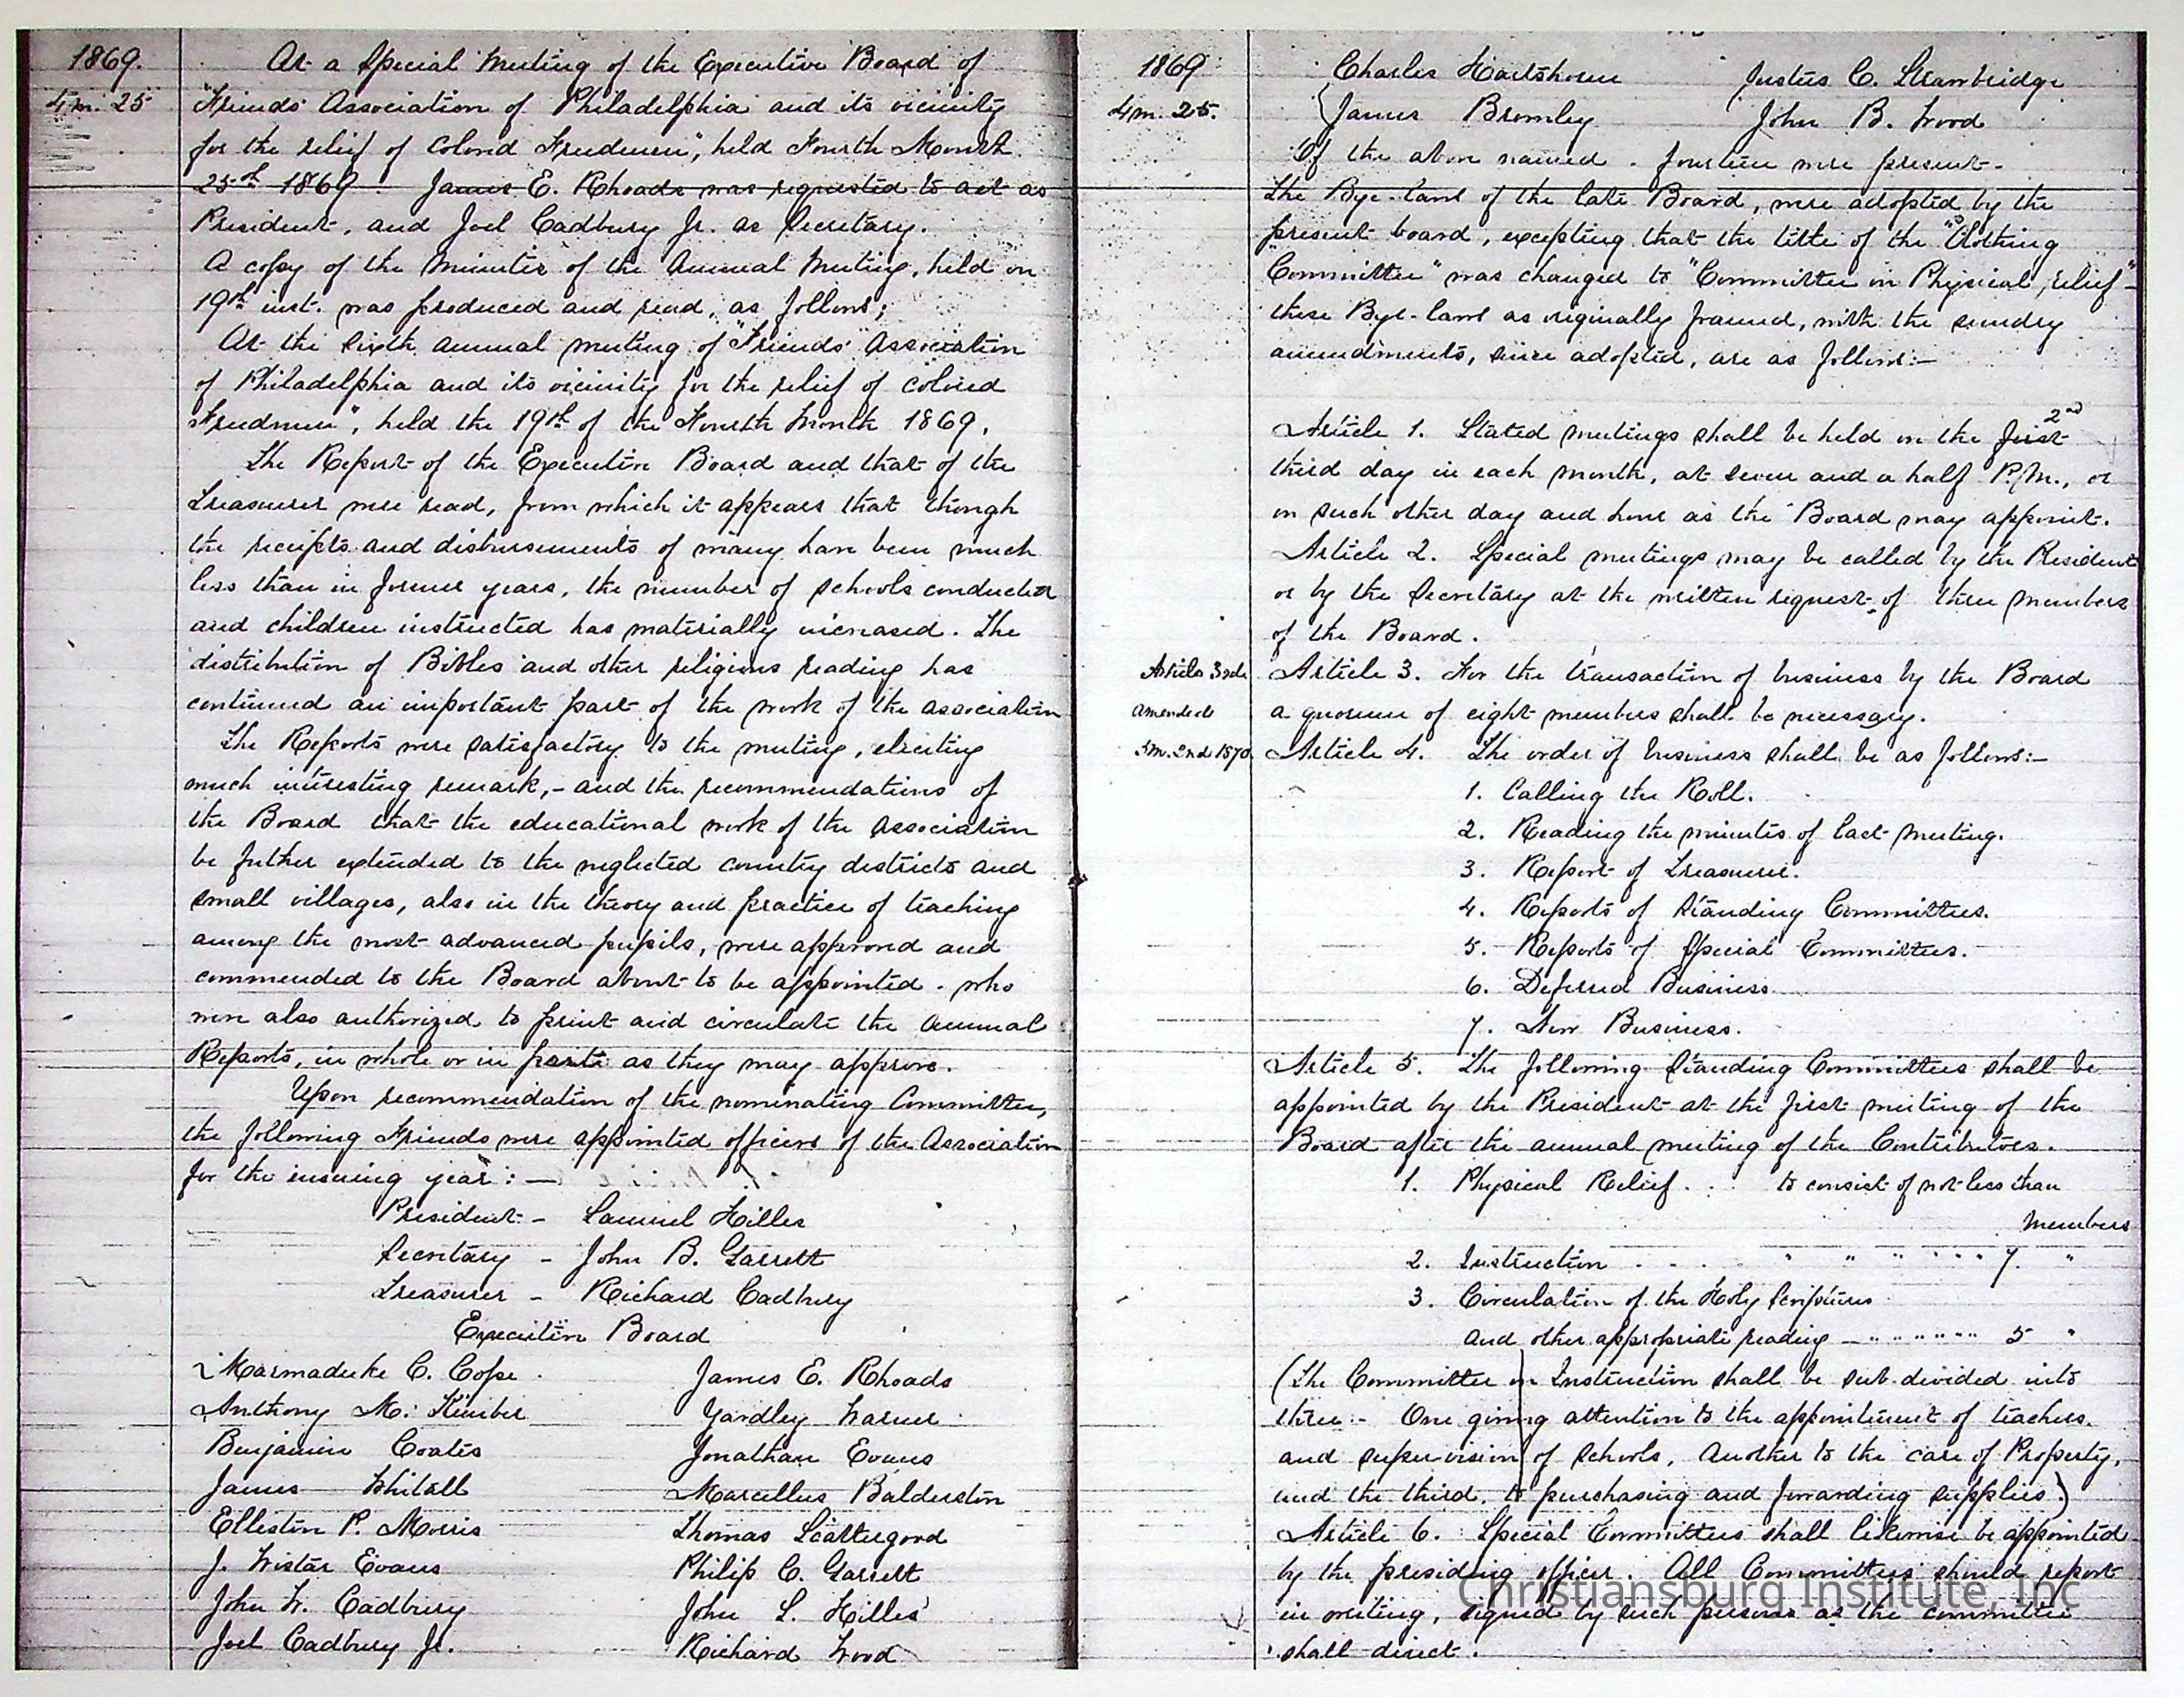 1869.
4m. 25
At a Special Meeting of the Executive Board of
"Friends' Association of Philadelphia and its vicinity
for the relief of Colored Freedmen", held Fourth Month
25th 1869. James E. Rhoads was requested to act as
President, and Joel Cadbury Jr. as Secretary.
A copy of the Minutes of the Annual Meeting, held on
19th inst. was produced and read, as follows;
At the Sixth annual meeting of "Friends' Association
of Philadelphia and its vicinity for the relief of colored
Freedmen", held the 19th of the Fourth Month 1869.
The Report of the Executive Board and that of the
Treasurer were read, from which it appears that though
the receipts and disbursements of many have been much
less than in former years, the number of schools conducted
and children instructed has materially increased. The
distribution of Bibles and other religious reading has
continued an important part of the work of the association
The Reports were satisfactory to the meeting, eliciting
much interesting remark,- and the recommendations of
the Board that the educational work of the Association
be futher extended to the neglected country districts and
small villages, also in the theory and practice of teaching
among the most advanced pupils, were approved and
commended to the Board about to be appointed. who
were also authorized to print and circulate the Annual
Reports, in whole or in parts as they may approve.
Upon recommendation of the nominating Committee,
the following Friends were appointed officers of the Association
for the ensuing year: —
President - Samuel Hilles
Secretary - John B. Garrett
Treasurer - Richard Cadbury
Executive Board
Marmaduke C. Cope James E. Rhoads
Anthony M. Kimber Yardley Warner
Benjamin Coates Jonathan Evans
James Whitall Marcellus Balderston
Elliston P. Morris Thomas Scattergood
J. Wistar Evans Philip C. Garrett
John W. Cadbury John S. Hilles
Joel Cadbury Jr. Richard Wood
1869
4m. 25.
Charles Hartshorne Justus C. Strawbridge
James Bromley John B. Wood
Of the above named. fourteen were present.
The Bye-laws of the late Board, were adopted by the
present board, excepting that the title of the "Clothing
Committee" was changed to "Committee on Physical relief"-
these Bye-laws as originally framed, with the sundry
amendments, since adopted, are as follows:—
2nd
Article 1. Stated meetings shall be held on the first
third day in each month, at seven and a half P.M., or
on such other day and hour as the Board may appoint.
Article 2. Special meetings may be called by the President
or by the Secretary at the written request of three members
of the Board.
Article 3rd
amended
5m. 2nd 1870.
Article 3. For the transaction of business by the Board
a quorum of eight members shall be necessary.
Article 4. The order of business shall be as follows:—
1. Calling the Roll.
2. Reading the minutes of last meeting.
3. Report of Treasurer.
4. Reports of Standing Committees.
5. Reports of Special Committees.
6. Deferred Business
7. New Business.
Article 5. The following Standing Committees shall be
appointed by the President at the first meeting of the
Board after the annual meeting of the Contributors.
1. Physical Relief . . . to consist of not less than
members
2. Instruction . . . " " " " " " 7. "
3. Circulation of the Holy Scriptures
and other appropriate reading — " " " " " " 5 "
(The Committee on Instruction shall be sub-divided into
three:- One giving attention to the appointment of teachers.
and supervision of schools, Another to the care of Property,
and the third, to purchasing and forwarding supplies.)
Article 6. Special Committees shall likewise be appointed
by the presiding officer. All Committees should report
in writing, signed by such persons as the committee
shall direct.
Christiansburg Institute, Inc